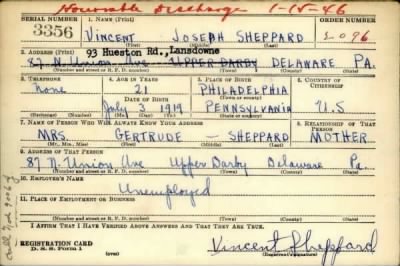 Honorable Discharge 1-15-46
SERIAL NUMBER 1. NAME (Print) ORDER NUMBER
3356 VINCENT JOSEPH SHEPPARD 2096
(First) (Middle) (Last)
93 Hueston Rd., Lansdowne
2. ADDRESS (Print)
87 N. UNION AVE UPPER DARBY DELAWARE PA.
(Number and street or R. F. D. number) (Town) (County) (State)
3. TELEPHONE 4. AGE IN YEARS 5. PLACE OF BIRTH 6. COUNTRY OF CITIZENSHIP
None 21 PHILADELPHIA
DATE OF BIRTH (Town or county)
July 1919 PENNSYLVANIA U.S
(Exchange) (Number) (Mo.) (Day) (Yr.) (State or country)
7. NAME OF PERSON WHO WILL ALWAYS KNOW YOUR ADDRESS 8. RELATIONSHIP OF THAT PERSON
MRS. GERTRUDE — SHEPPARD MOTHER
(Mr., Mrs., Miss) (First) (Middle) (Last)
9. ADDRESS OF THAT PERSON
87 N. Union Ave Upper Darby Delaware Pa.
(Number and street or R. F. D. number) (Town) (County) (State)
10. EMPLOYER'S NAME
Unemployed
11. PLACE OF EMPLOYMENT OR BUSINESS
(Number and street or R. F. D. number) (Town) (County) (State)
I AFFIRM THAT I HAVE VERIFIED ABOVE ANSWERS AND THAT THEY ARE TRUE.
REGISTRATION CARD
D. S. S. Form 1 Vincent Sheppard
(Registrant's signature)